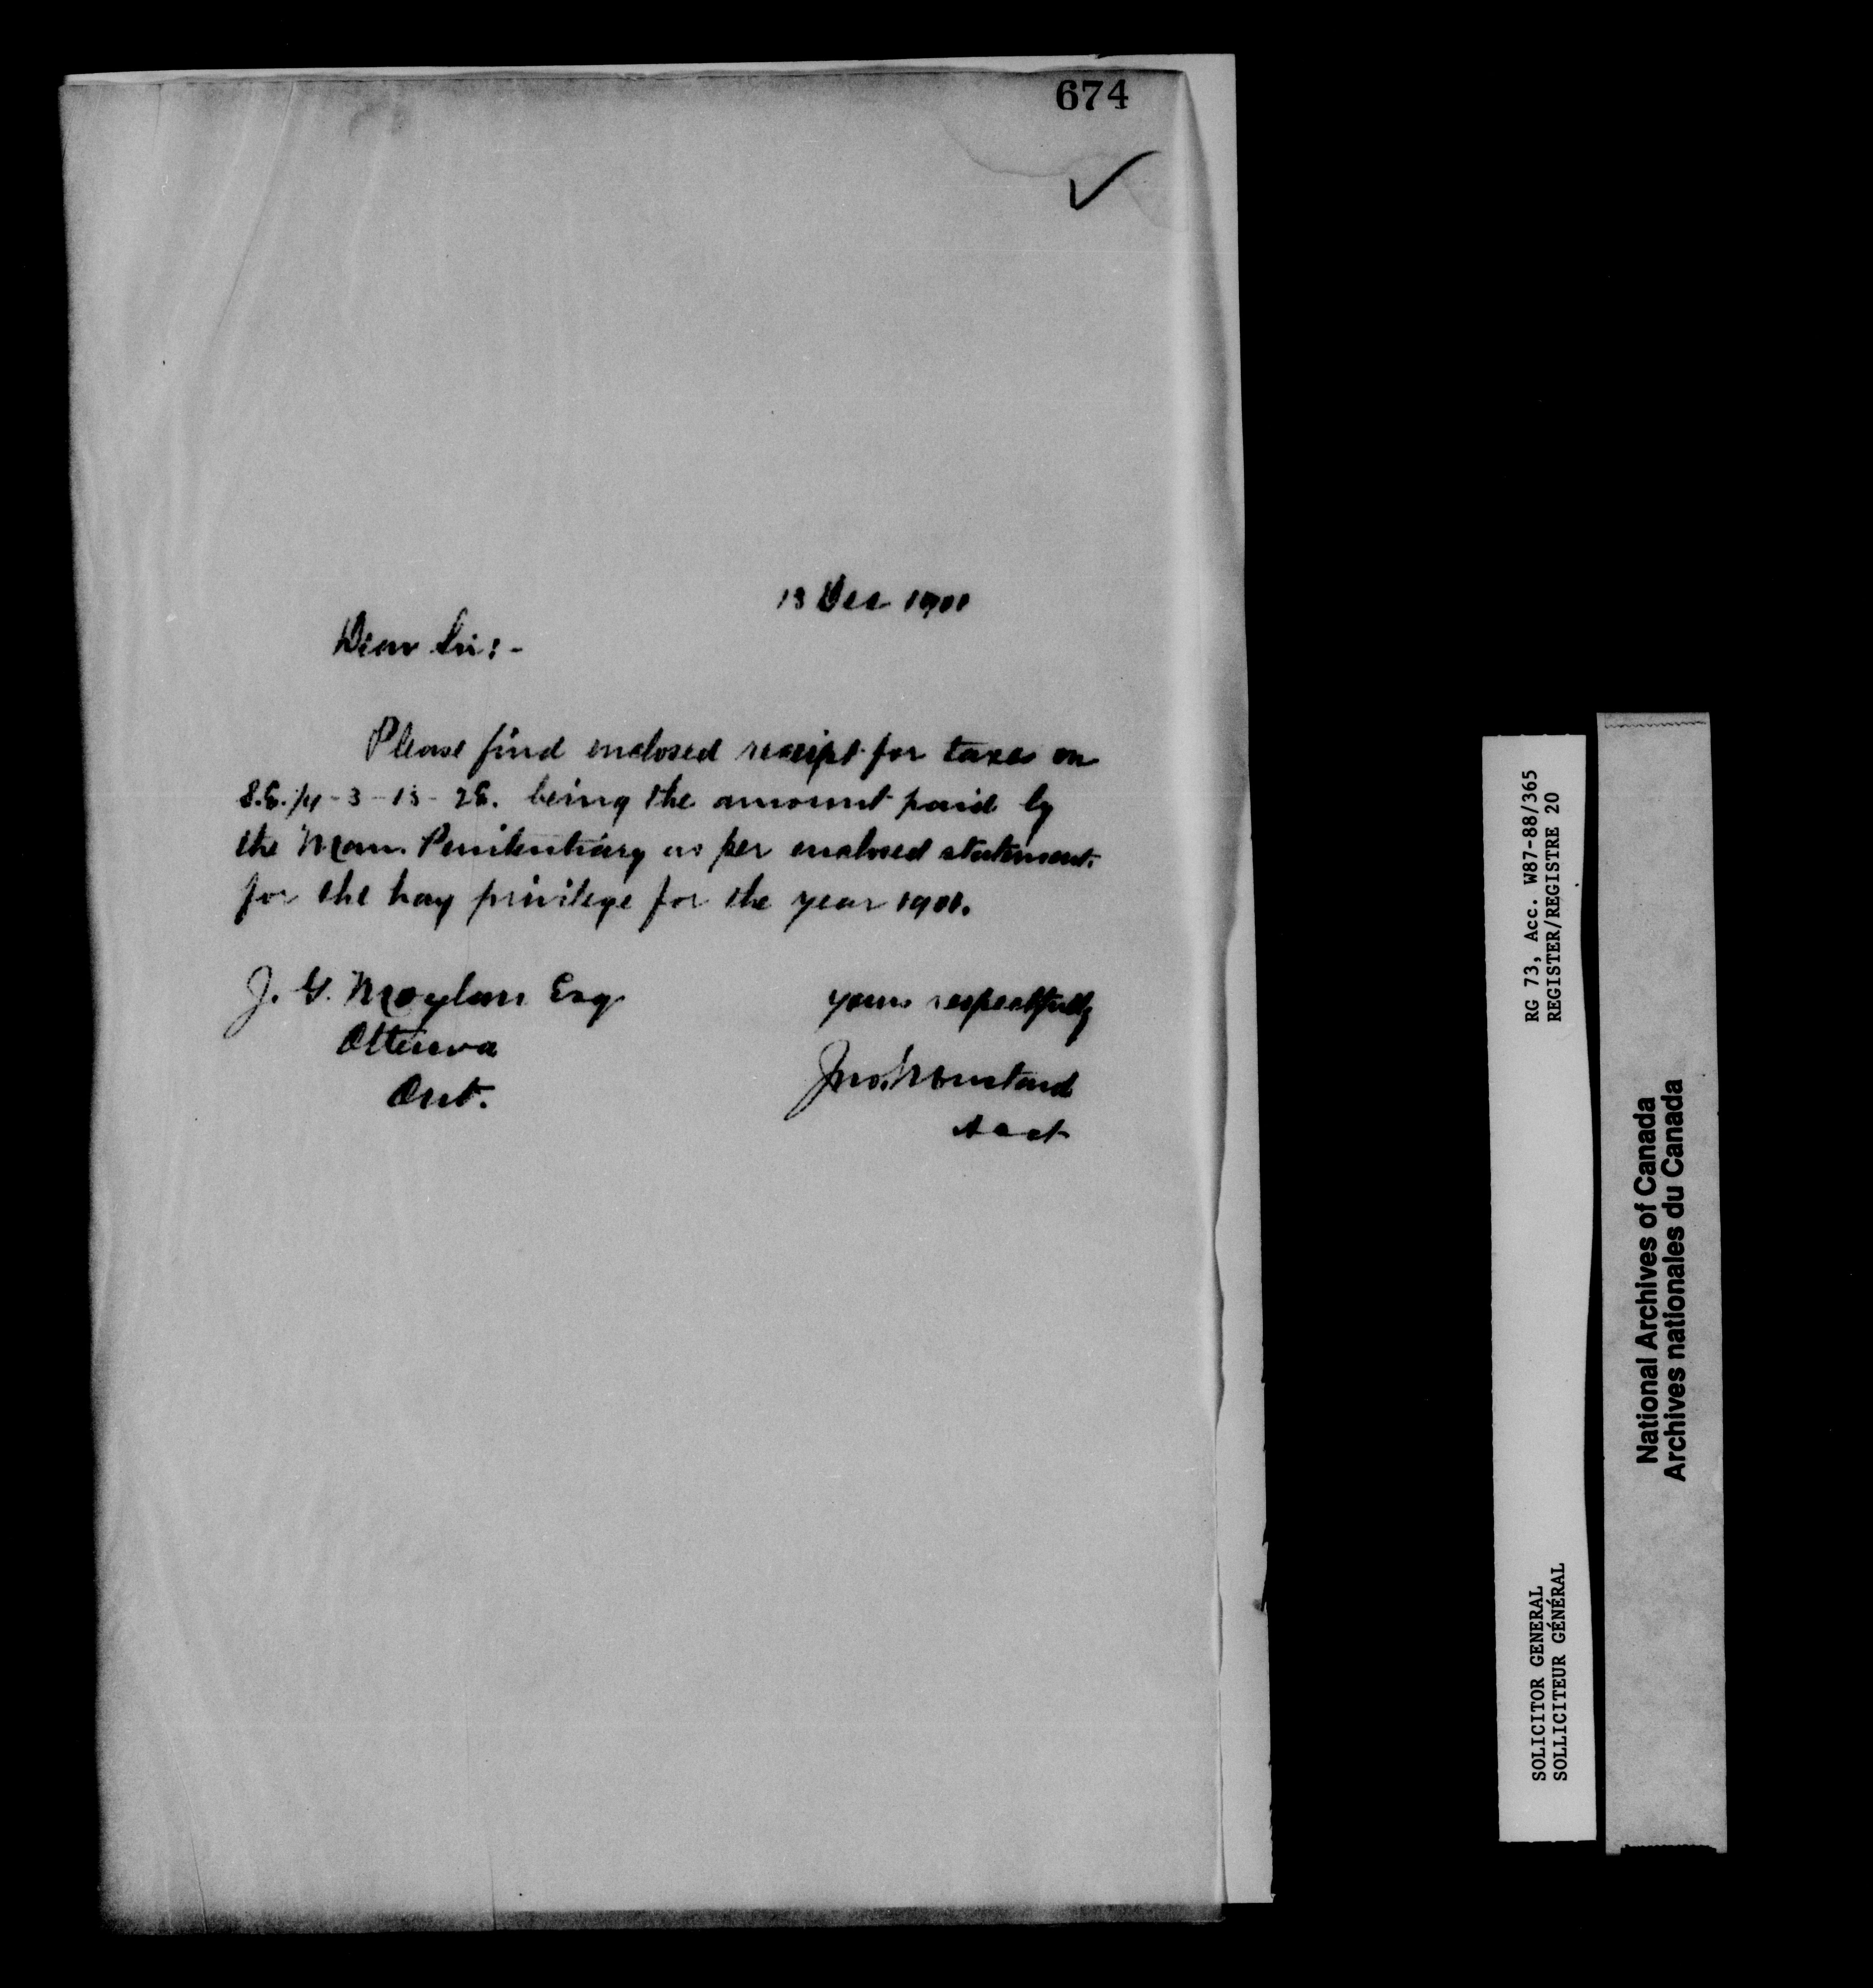 674
13 Dec 1901
Dear Sir:-
Please find enclosed receipt for taxes on
S.E. 1/4 - 3 - 13 - 2E. being the amount paid by
the Man. Penitentiary as per enclosed statement
for the hay privilege for the year 1901.
J. G. Moylan Esq
Ottawa
Ont.
yours respectfully
Jno. Mustard
Acct
RG 73, Acc. W87-88/365
REGISTER/REGISTRE 20
SOLICITOR GENERAL
SOLLICITEUR GÉNÉRAL
National Archives of Canada
Archives nationales du Canada